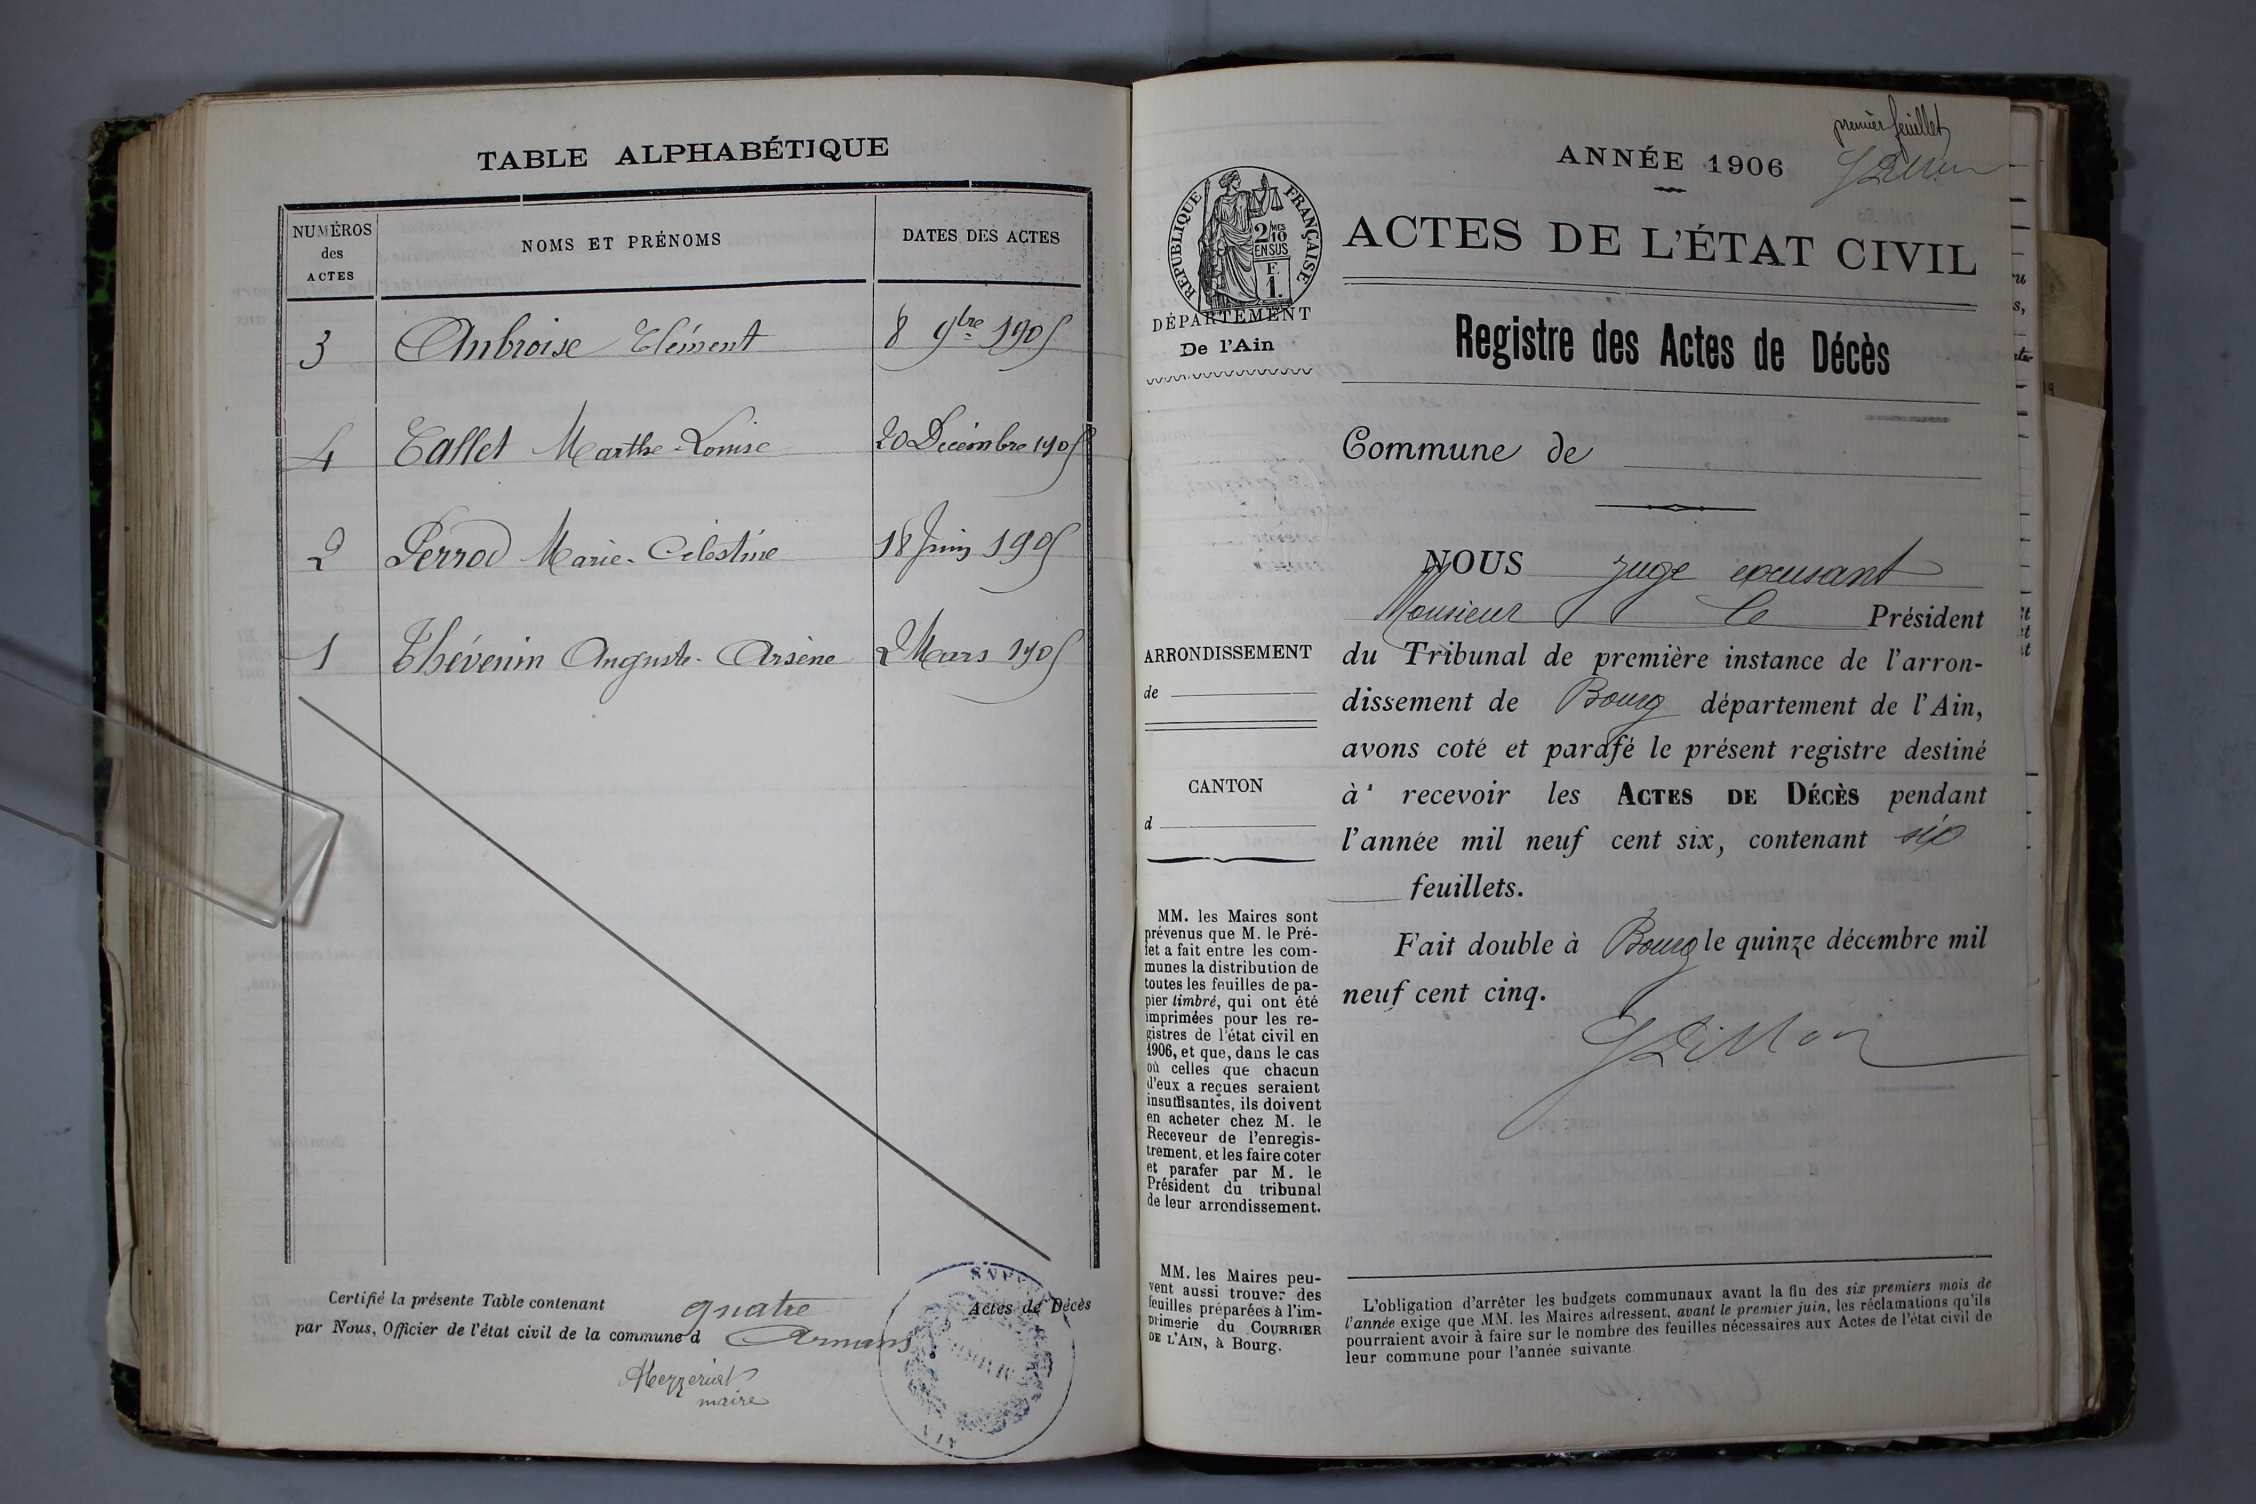 TABLE ALPHABÉTIQUE
NUMÉROS des ACTES
NOMS ET PRÉNOMS
DATES DES ACTES
3 Ambroise Clément 8 9bre 1905
4 Tallet Marthe-Louise 20 Décembre 1905
2 Perrod Marie-Célestine 18 Juin 1905
1 Thévenin Auguste-Arsène 2 Mars 1905
Certifié la présente Table contenant quatre Actes de Décès
par Nous, Officier de l'état civil de la commune d Armans
maire
premier feuillet
ANNÉE 1906
RÉPUBLIQUE FRANÇAISE
2/10 MES
EN SUS
F.
1.
ACTES DE L'ÉTAT CIVIL
DÉPARTEMENT
De l'Ain
Registre des Actes de Décès
Commune de
NOUS juge excusant
Monsieur le Président
du Tribunal de première instance de l'arron-
dissement de Bourg département de l'Ain,
avons coté et parafé le présent registre destiné
à recevoir les ACTES DE DÉCÈS pendant
l'année mil neuf cent six, contenant six
feuillets.
Fait double à Bourg le quinze décembre mil
neuf cent cinq.
ARRONDISSEMENT
de
CANTON
d
MM. les Maires sont
prévenus que M. le Pré-
fet a fait entre les com-
munes la distribution de
toutes les feuilles de pa-
pier timbré, qui ont été
imprimées pour les re-
gistres de l'état civil en
1906, et que, dans le cas
où celles que chacun
d'eux a reçues seraient
insuffisantes, ils doivent
en acheter chez M. le
Receveur de l'enregis-
trement, et les faire coter
et parafer par M. le
Président du tribunal
de leur arrondissement.
MM. les Maires peu-
vent aussi trouver des
feuilles préparées à l'im-
primerie du COURRIER
DE L'AIN, à Bourg.
L'obligation d'arrêter les budgets communaux avant la fin des six premiers mois de
l'année exige que MM. les Maires adressent, avant le premier juin, les réclamations qu'ils
pourraient avoir à faire sur le nombre des feuilles nécessaires aux Actes de l'état civil de
leur commune pour l'année suivante.